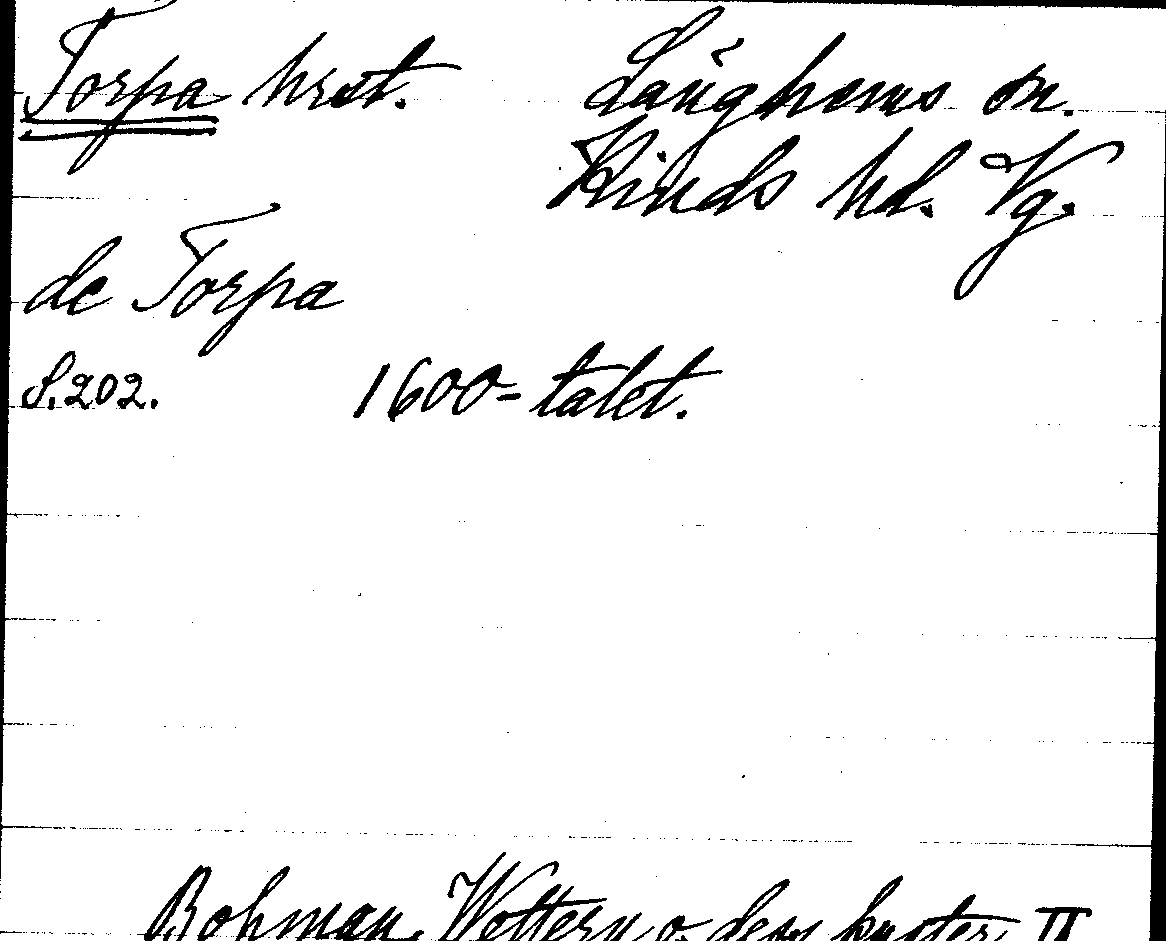 Torpa hrst. Länghems sn.
Kinds hd. Vg.
de Torpa
S. 202. 1600-talet.
Bohman, Wettern o. dess kuster, II